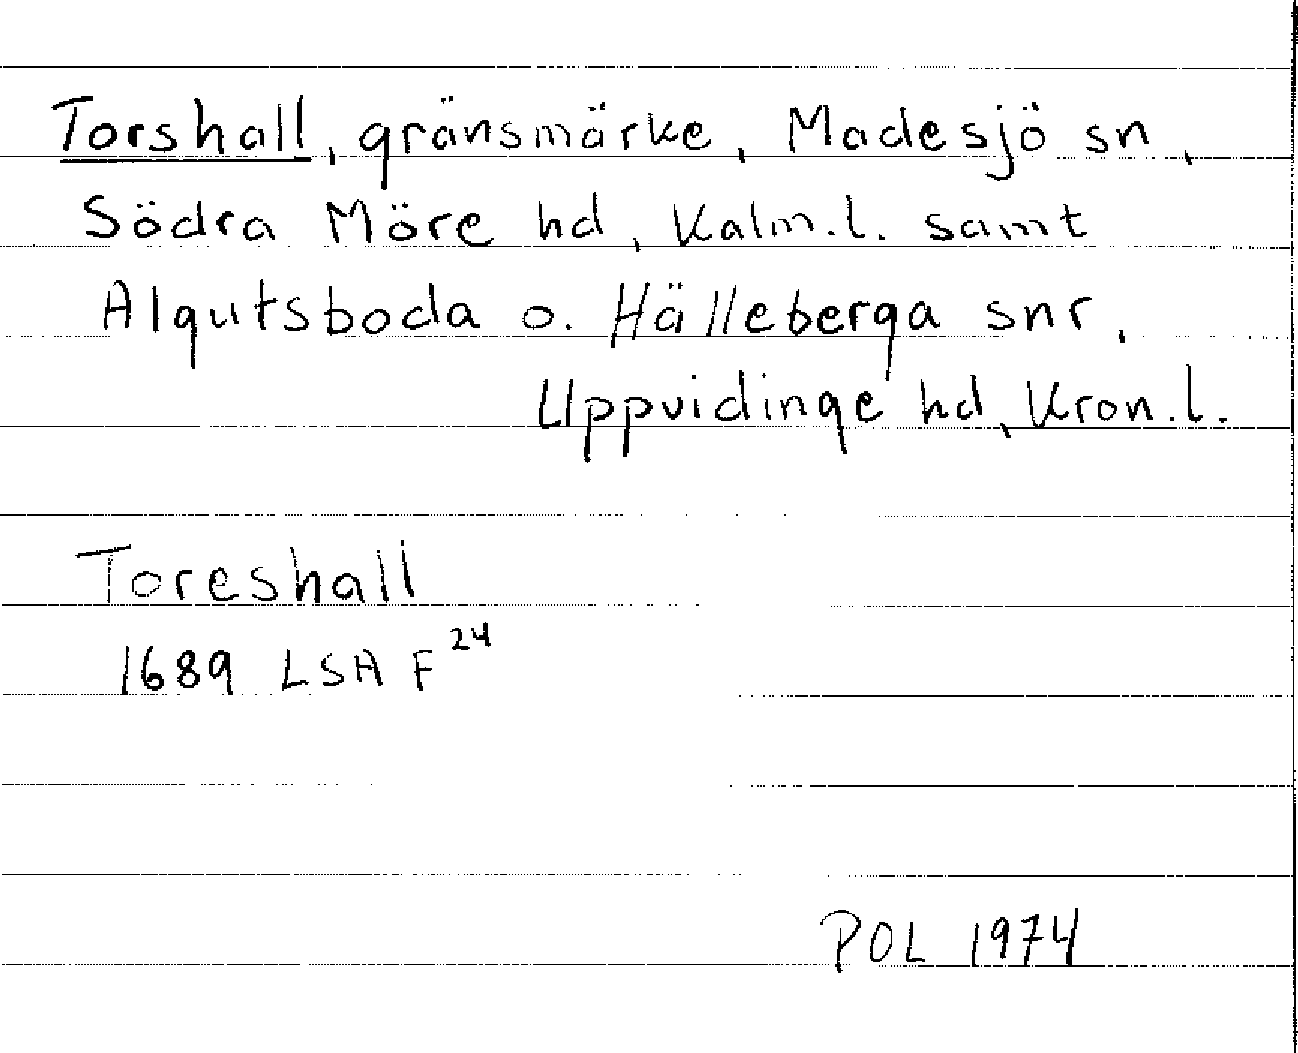 Torshall, gränsmärke, Madesjö sn,
Södra Möre hd, Kalm.l. samt
Algutsboda o. Hälleberga snr,
Uppvidinge hd, Kron.l.
Toreshall
1689 LSA F24
POL 1974